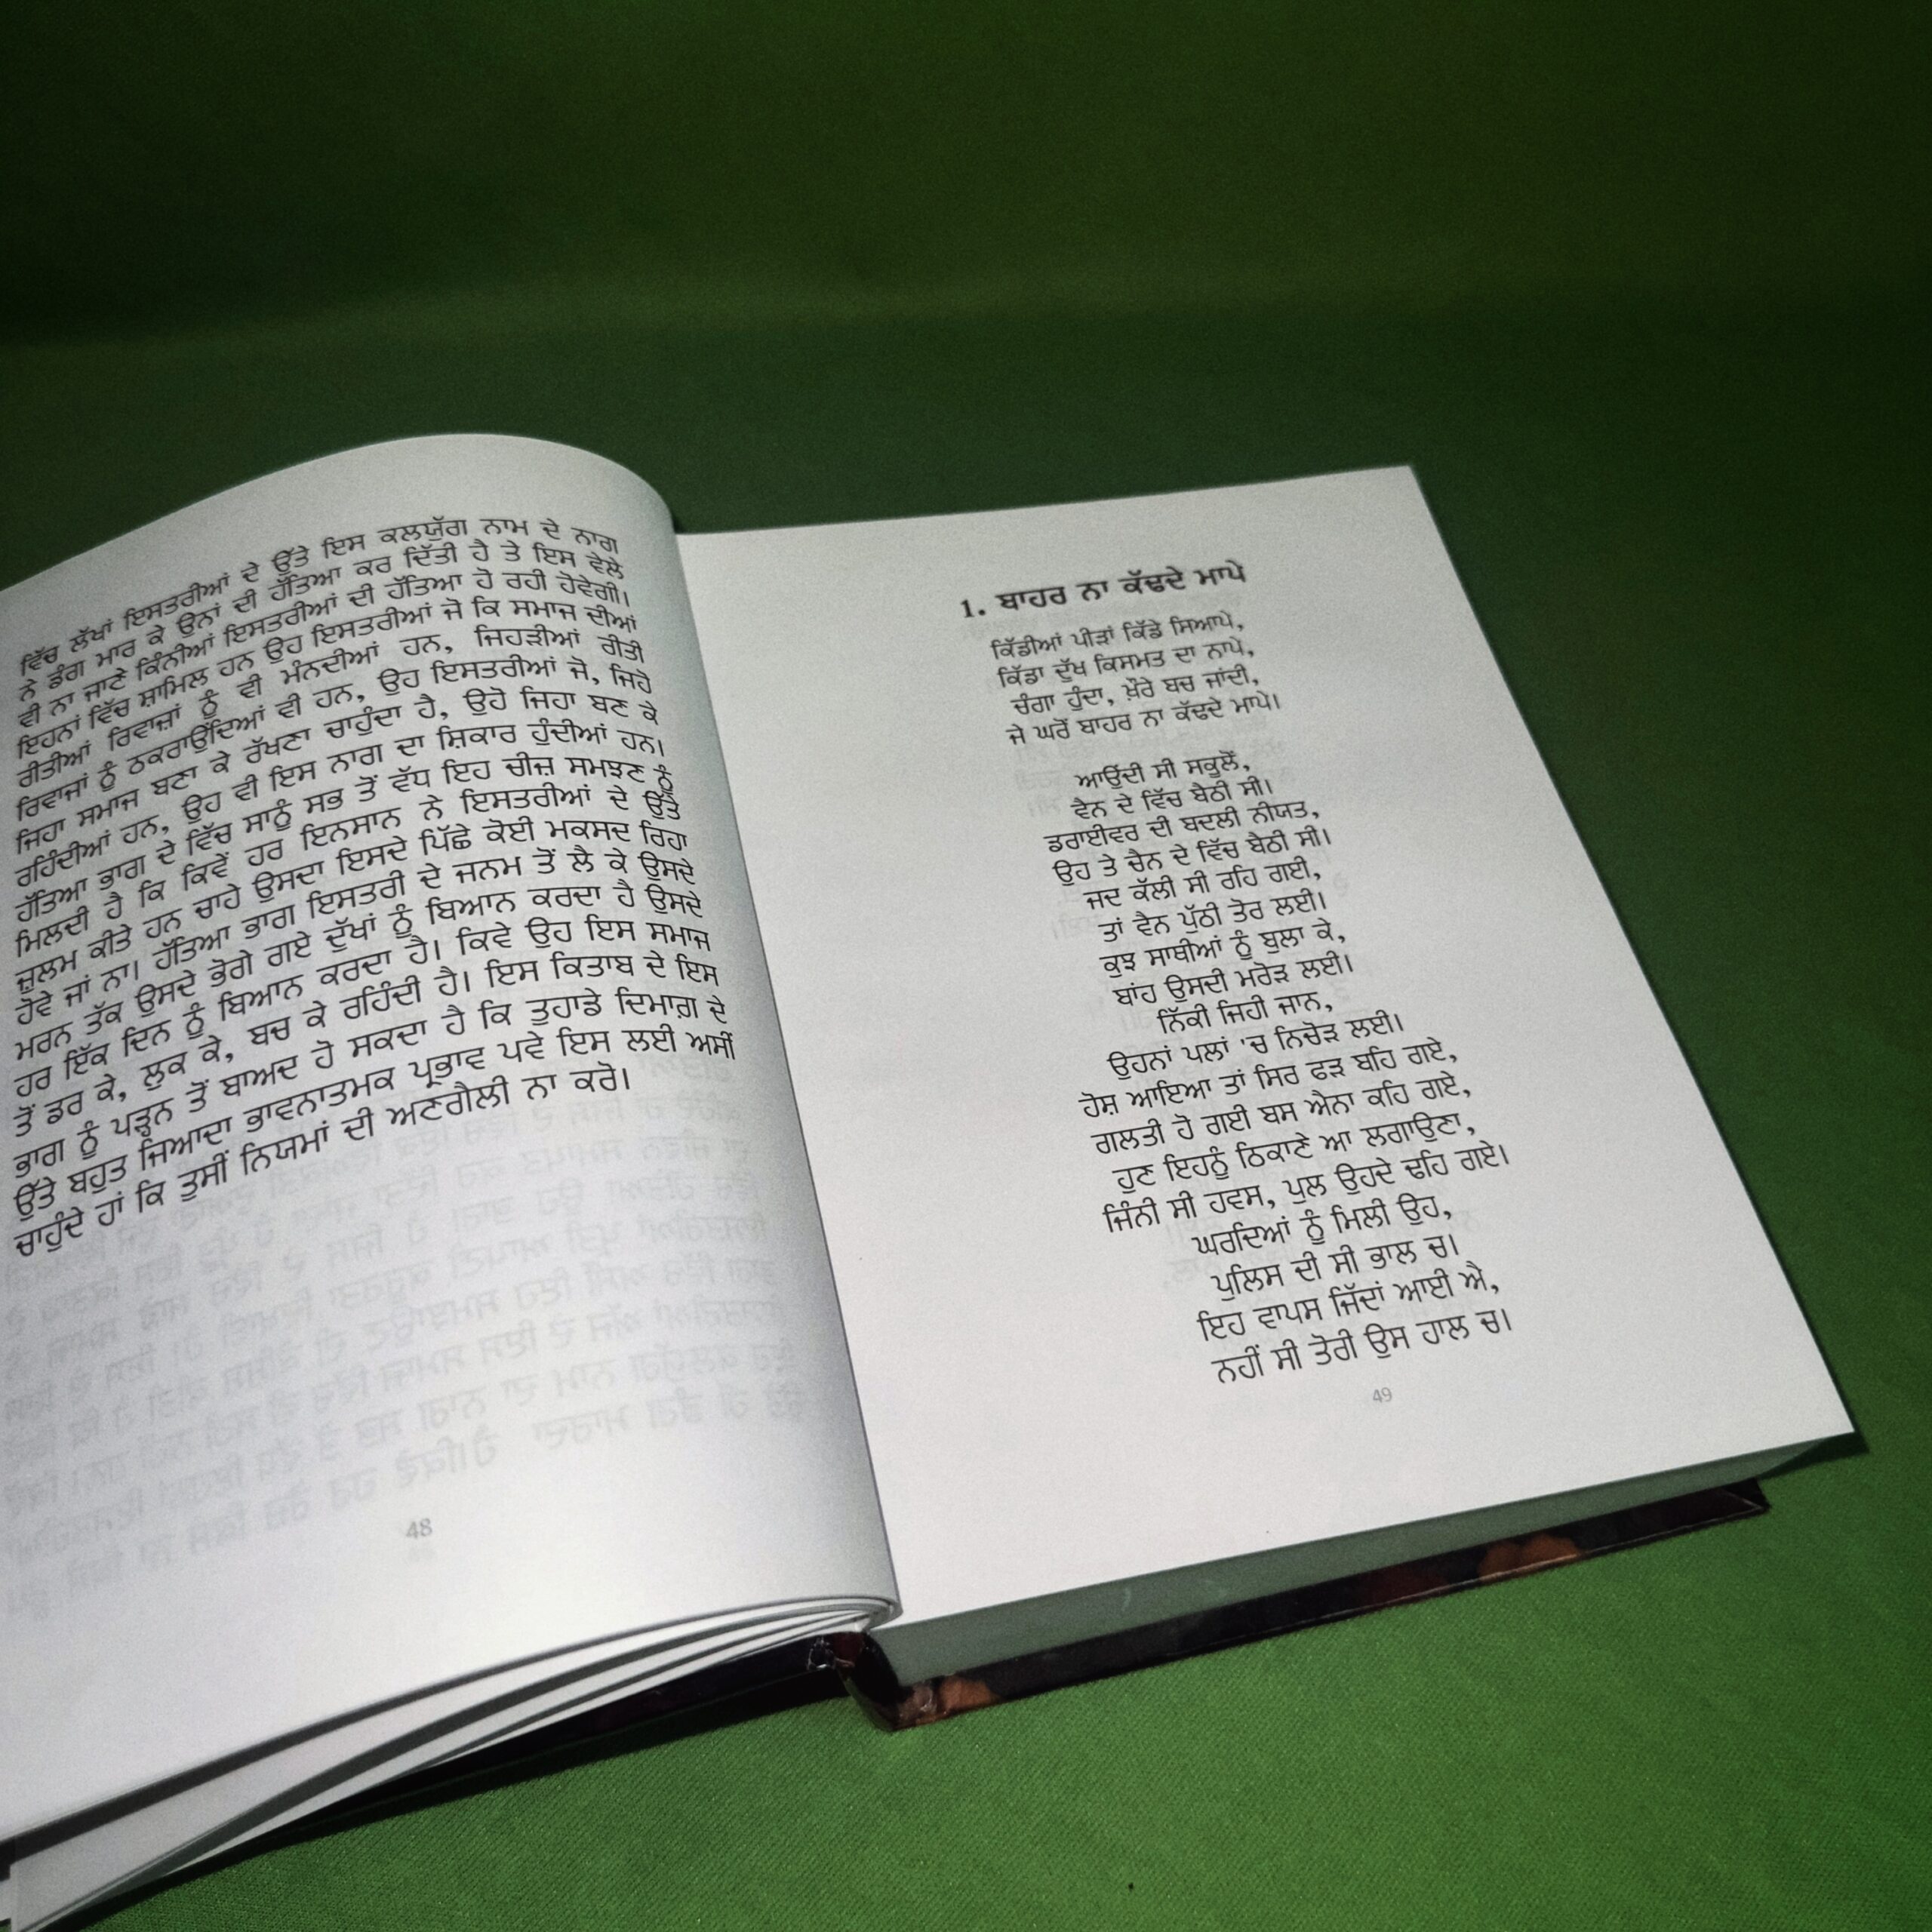 ਵਿੱਚ ਲੱਖਾਂ ਇਸਤਰੀਆਂ ਦੇ ਉੱਤੇ ਇਸ ਕਲਯੁੱਗ ਨਾਮ ਦੇ ਨਾਗ
ਨੇ ਡੰਗ ਮਾਰ ਕੇ ਉਨਾਂ ਦੀ ਹੱਤਿਆ ਕਰ ਦਿੱਤੀ ਹੈ ਤੇ ਇਸ ਵੇਲੇ
ਵੀ ਨਾ ਜਾਣੇ ਕਿੰਨੀਆਂ ਇਸਤਰੀਆਂ ਦੀ ਹੱਤਿਆ ਹੋ ਰਹੀ ਹੋਵੇਗੀ।
ਇਹਨਾਂ ਵਿੱਚ ਸ਼ਾਮਿਲ ਹਨ ਉਹ ਇਸਤਰੀਆਂ ਜੋ ਕਿ ਸਮਾਜ ਦੀਆਂ
ਰੀਤੀਆਂ ਰਿਵਾਜ਼ਾਂ ਨੂੰ ਵੀ ਮੰਨਦੀਆਂ ਹਨ, ਜਿਹੜੀਆਂ ਰੀਤੀ
ਰਿਵਾਜਾਂ ਨੂੰ ਠਕਰਾਉਂਦਿਆਂ ਵੀ ਹਨ, ਉਹ ਇਸਤਰੀਆਂ ਜੋ, ਜਿਹੋ
ਜਿਹਾ ਸਮਾਜ ਬਣਾ ਕੇ ਰੱਖਣਾ ਚਾਹੁੰਦਾ ਹੈ, ਉਹੋ ਜਿਹਾ ਬਣ ਕੇ
ਰਹਿੰਦੀਆਂ ਹਨ, ਉਹ ਵੀ ਇਸ ਨਾਗ ਦਾ ਸ਼ਿਕਾਰ ਹੁੰਦੀਆਂ ਹਨ।
ਹੱਤਿਆ ਭਾਗ ਦੇ ਵਿੱਚ ਸਾਨੂੰ ਸਭ ਤੋਂ ਵੱਧ ਇਹ ਚੀਜ਼ ਸਮਝਣ ਨੂੰ
ਮਿਲਦੀ ਹੈ ਕਿ ਕਿਵੇਂ ਹਰ ਇਨਸਾਨ ਨੇ ਇਸਤਰੀਆਂ ਦੇ ਉੱਤੇ
ਜ਼ੁਲਮ ਕੀਤੇ ਹਨ ਚਾਹੇ ਉਸਦਾ ਇਸਦੇ ਪਿੱਛੇ ਕੋਈ ਮਕਸਦ ਰਿਹਾ
ਹੋਵੇ ਜਾਂ ਨਾ। ਹੱਤਿਆ ਭਾਗ ਇਸਤਰੀ ਦੇ ਜਨਮ ਤੋਂ ਲੈ ਕੇ ਉਸਦੇ
ਮਰਨ ਤੱਕ ਉਸਦੇ ਭੋਗੇ ਗਏ ਦੁੱਖਾਂ ਨੂੰ ਬਿਆਨ ਕਰਦਾ ਹੈ ਉਸਦੇ
ਹਰ ਇੱਕ ਦਿਨ ਨੂੰ ਬਿਆਨ ਕਰਦਾ ਹੈ। ਕਿਵੇ ਉਹ ਇਸ ਸਮਾਜ
ਤੋਂ ਡਰ ਕੇ, ਲੁਕ ਕੇ, ਬਚ ਕੇ ਰਹਿੰਦੀ ਹੈ। ਇਸ ਕਿਤਾਬ ਦੇ ਇਸ
ਭਾਗ ਨੂੰ ਪੜ੍ਹਨ ਤੋਂ ਬਾਅਦ ਹੋ ਸਕਦਾ ਹੈ ਕਿ ਤੁਹਾਡੇ ਦਿਮਾਗ਼ ਦੇ
ਉੱਤੇ ਬਹੁਤ ਜਿਆਦਾ ਭਾਵਨਾਤਮਕ ਪ੍ਰਭਾਵ ਪਵੇ ਇਸ ਲਈ ਅਸੀਂ
ਚਾਹੁੰਦੇ ਹਾਂ ਕਿ ਤੁਸੀਂ ਨਿਯਮਾਂ ਦੀ ਅਣਗੈਲੀ ਨਾ ਕਰੋ।
48
1. ਬਾਹਰ ਨਾ ਕੱਢਦੇ ਮਾਪੇ
ਕਿੱਡੀਆਂ ਪੀੜਾਂ ਕਿੱਡੇ ਸਿਆਪੇ,
ਕਿੱਡਾ ਦੁੱਖ ਕਿਸਮਤ ਦਾ ਨਾਪੇ,
ਚੰਗਾ ਹੁੰਦਾ, ਖ਼ੌਰੇ ਬਚ ਜਾਂਦੀ,
ਜੇ ਘਰੋਂ ਬਾਹਰ ਨਾ ਕੱਢਦੇ ਮਾਪੇ।
ਆਉਂਦੀ ਸੀ ਸਕੂਲੋਂ,
ਵੈਨ ਦੇ ਵਿੱਚ ਬੈਠੀ ਸੀ।
ਡਰਾਈਵਰ ਦੀ ਬਦਲੀ ਨੀਯਤ,
ਉਹ ਤੇ ਚੈਨ ਦੇ ਵਿੱਚ ਬੈਠੀ ਸੀ।
ਜਦ ਕੱਲੀ ਸੀ ਰਹਿ ਗਈ,
ਤਾਂ ਵੈਨ ਪੁੱਠੀ ਤੋਰ ਲਈ।
ਕੁਝ ਸਾਥੀਆਂ ਨੂੰ ਬੁਲਾ ਕੇ,
ਬਾਂਹ ਉਸਦੀ ਮਰੋੜ ਲਈ।
ਨਿੱਕੀ ਜਿਹੀ ਜਾਨ,
ਉਹਨਾਂ ਪਲਾਂ 'ਚ ਨਿਚੋੜ ਲਈ।
ਹੋਸ਼ ਆਇਆ ਤਾਂ ਸਿਰ ਫੜ ਬਹਿ ਗਏ,
ਗਲਤੀ ਹੋ ਗਈ ਬਸ ਐਨਾ ਕਹਿ ਗਏ,
ਹੁਣ ਇਹਨੂੰ ਠਿਕਾਣੇ ਆ ਲਗਾਉਣਾ,
ਜਿੰਨੀ ਸੀ ਹਵਸ, ਪੁਲ ਉਹਦੇ ਢਹਿ ਗਏ।
ਘਰਦਿਆਂ ਨੂੰ ਮਿਲੀ ਉਹ,
ਪੁਲਿਸ ਦੀ ਸੀ ਭਾਲ ਚ।
ਇਹ ਵਾਪਸ ਜਿੱਦਾਂ ਆਈ ਐ,
ਨਹੀਂ ਸੀ ਤੋਰੀ ਉਸ ਹਾਲ ਚ।
49